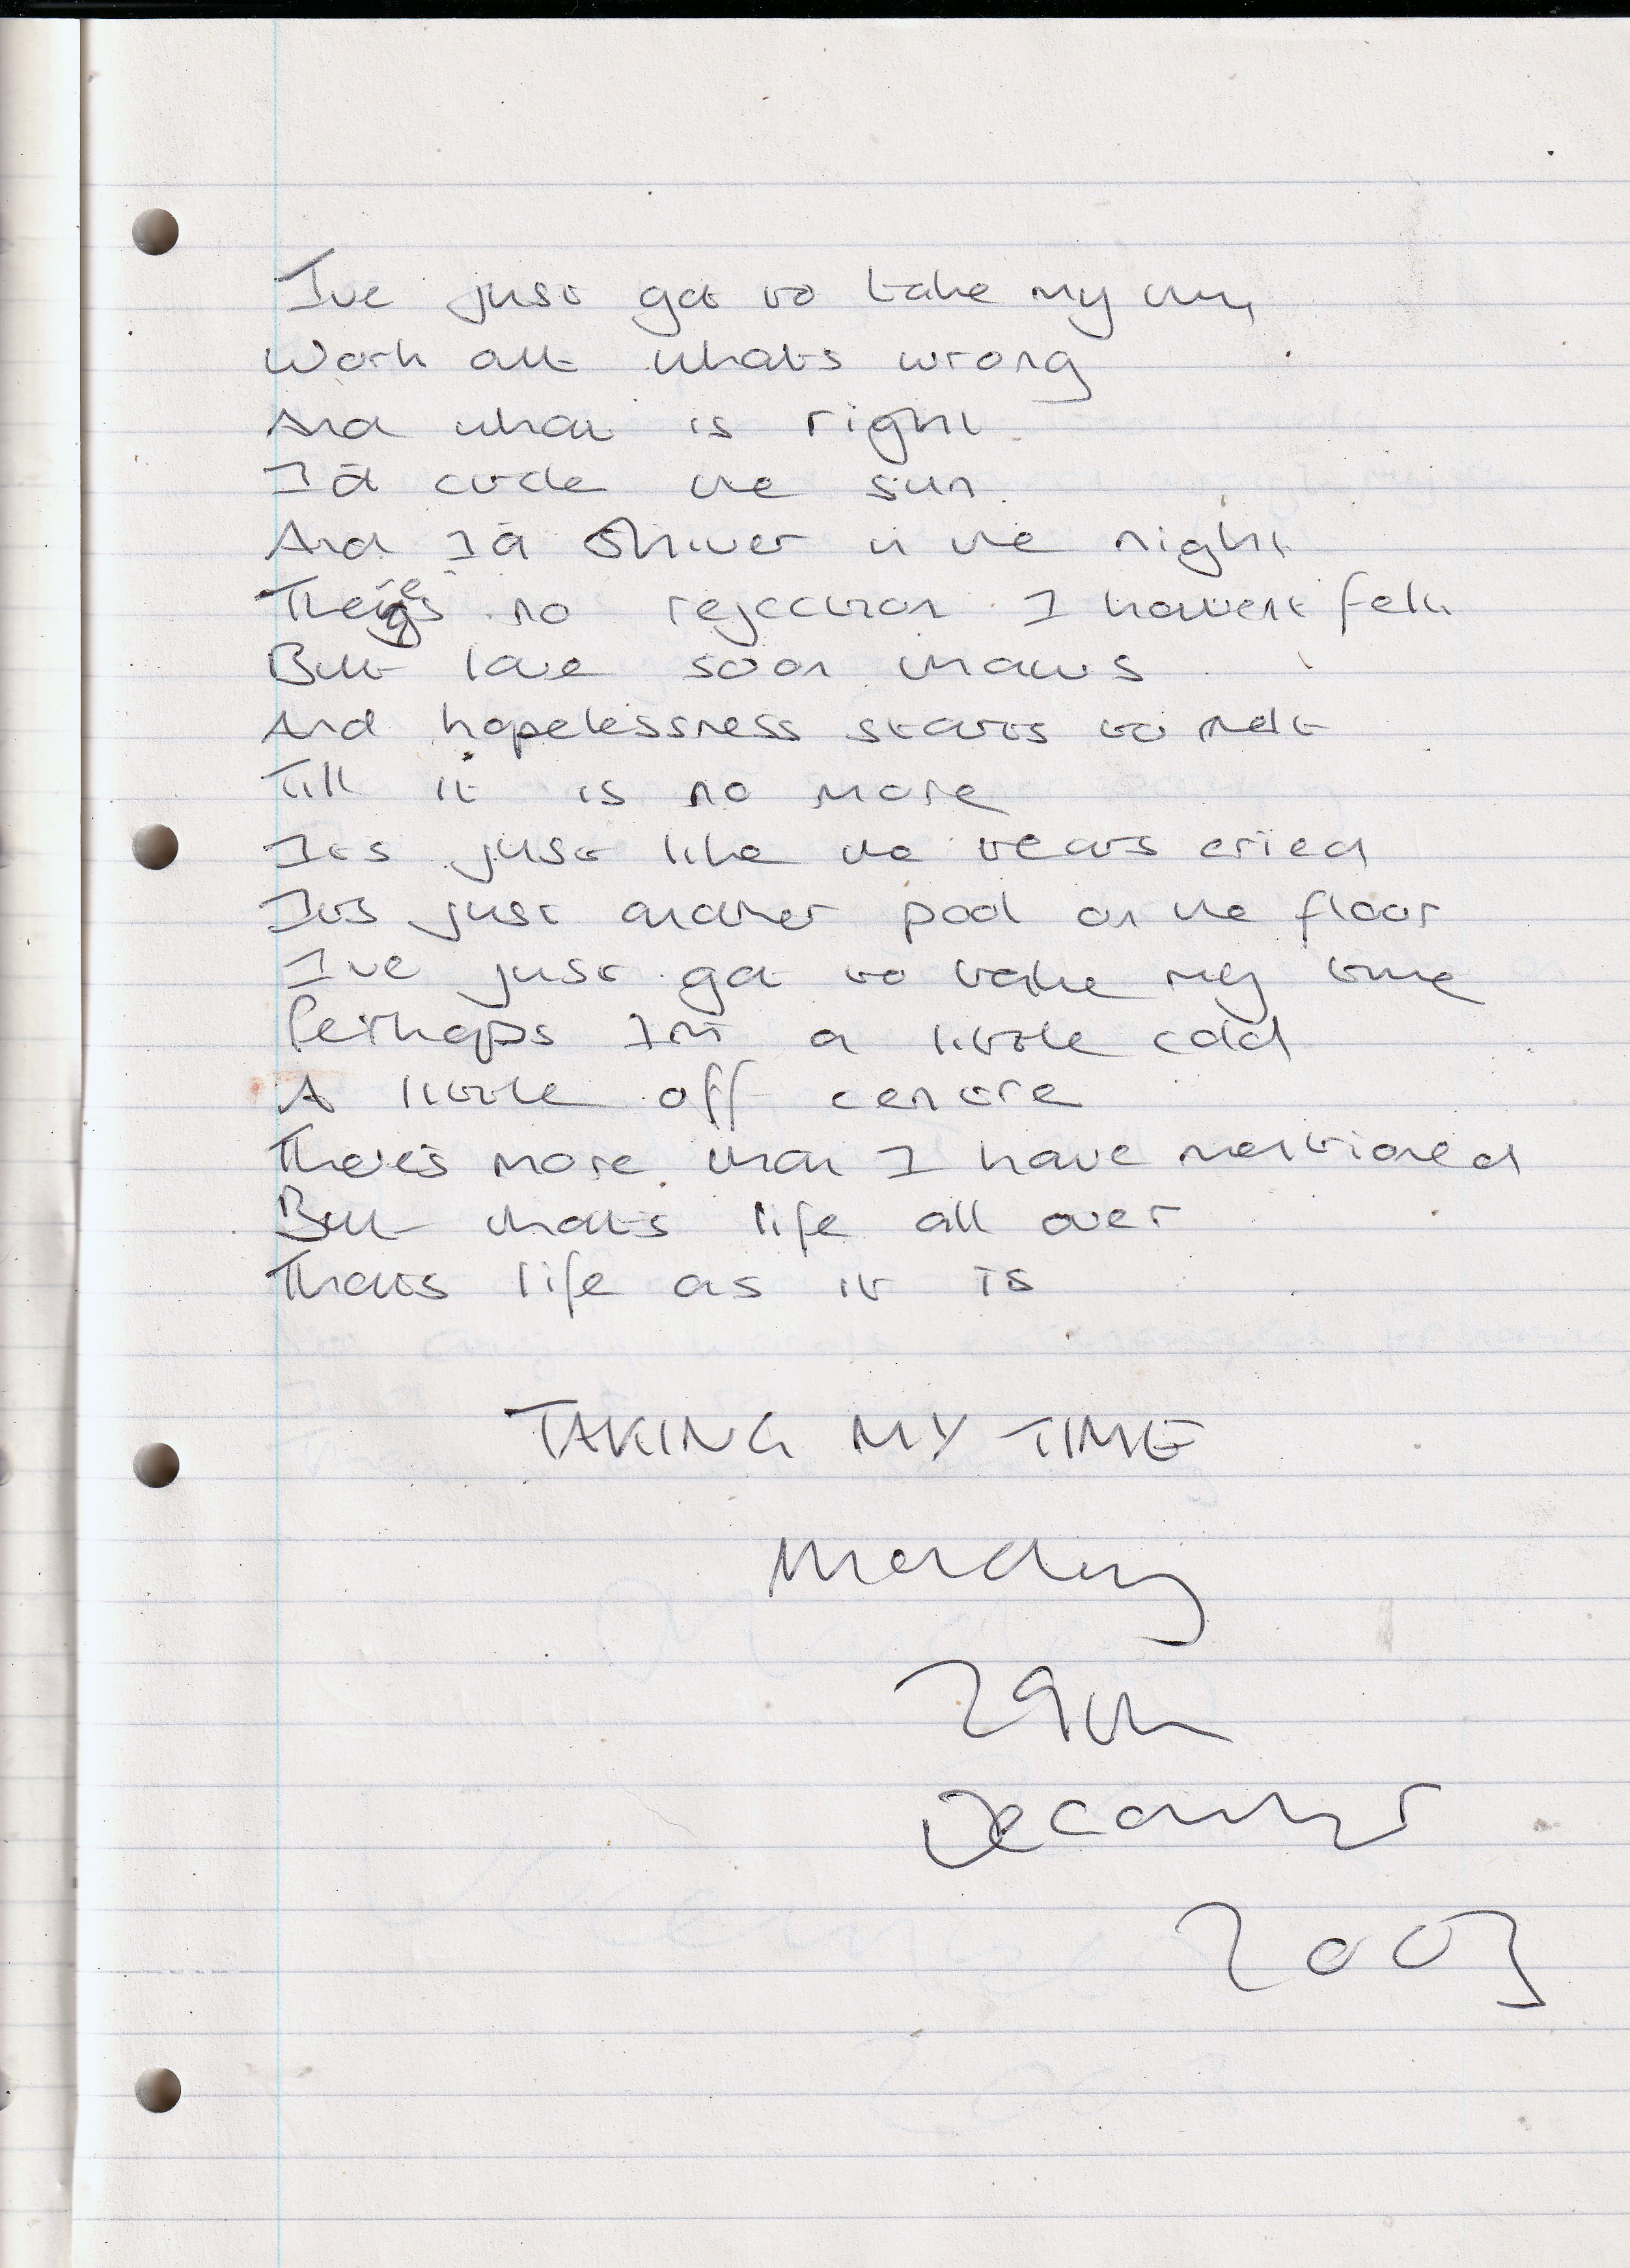 I've just got to take my time
Work out what's wrong
And what is right
I'd circle the sun
And I'd shiver in the night
There's no rejection I havent felt
But love soon thaws
And hopelessness starts to melt
Till it is no more
Its just like the tears cried
Its just another pool on the floor
I've just got to take my time
Perhaps I'm a little cold
A little off centre
There's more than I have mentioned
But that's life all over
Thats life as it is
TAKING MY TIME
Monday
29th
December
2003